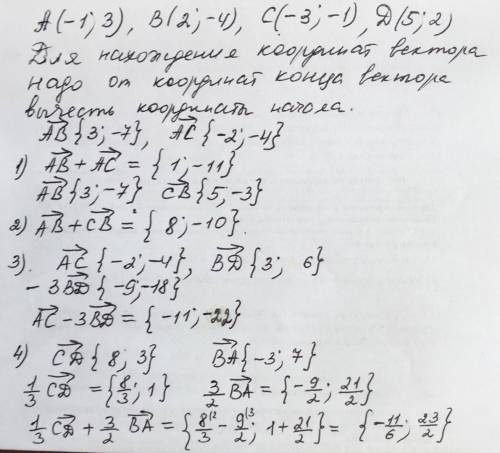 A(-1; 3), B(2; -4), C(-3; -1), Д(5; 2)
Для нахождения координат вектора
надо от координат конца вектора
вычесть координаты начала.
AB→{3; -7}, AC→{-2; -4}
1) AB→ + AC→ = {1; -11}
AB→{3; -7} CB→{5, -3}
2) AB→ + CB→ = {8; -10}.
3). AC→{-2; -4}, BД→{3; 6}
-3BД→{-9; -18}
AC→ - 3BД→ = {-11; -22}
4) CД→{8; 3} BA→{-3; 7}
1/3 CД→ = {8/3; 1} 3/2 BA→ = {-9/2; 21/2}
1/3 CД→ + 3/2 BA→ = {8/3 (2 - 9/2 (3; 1 + 21/2} = {-11/6; 23/2}